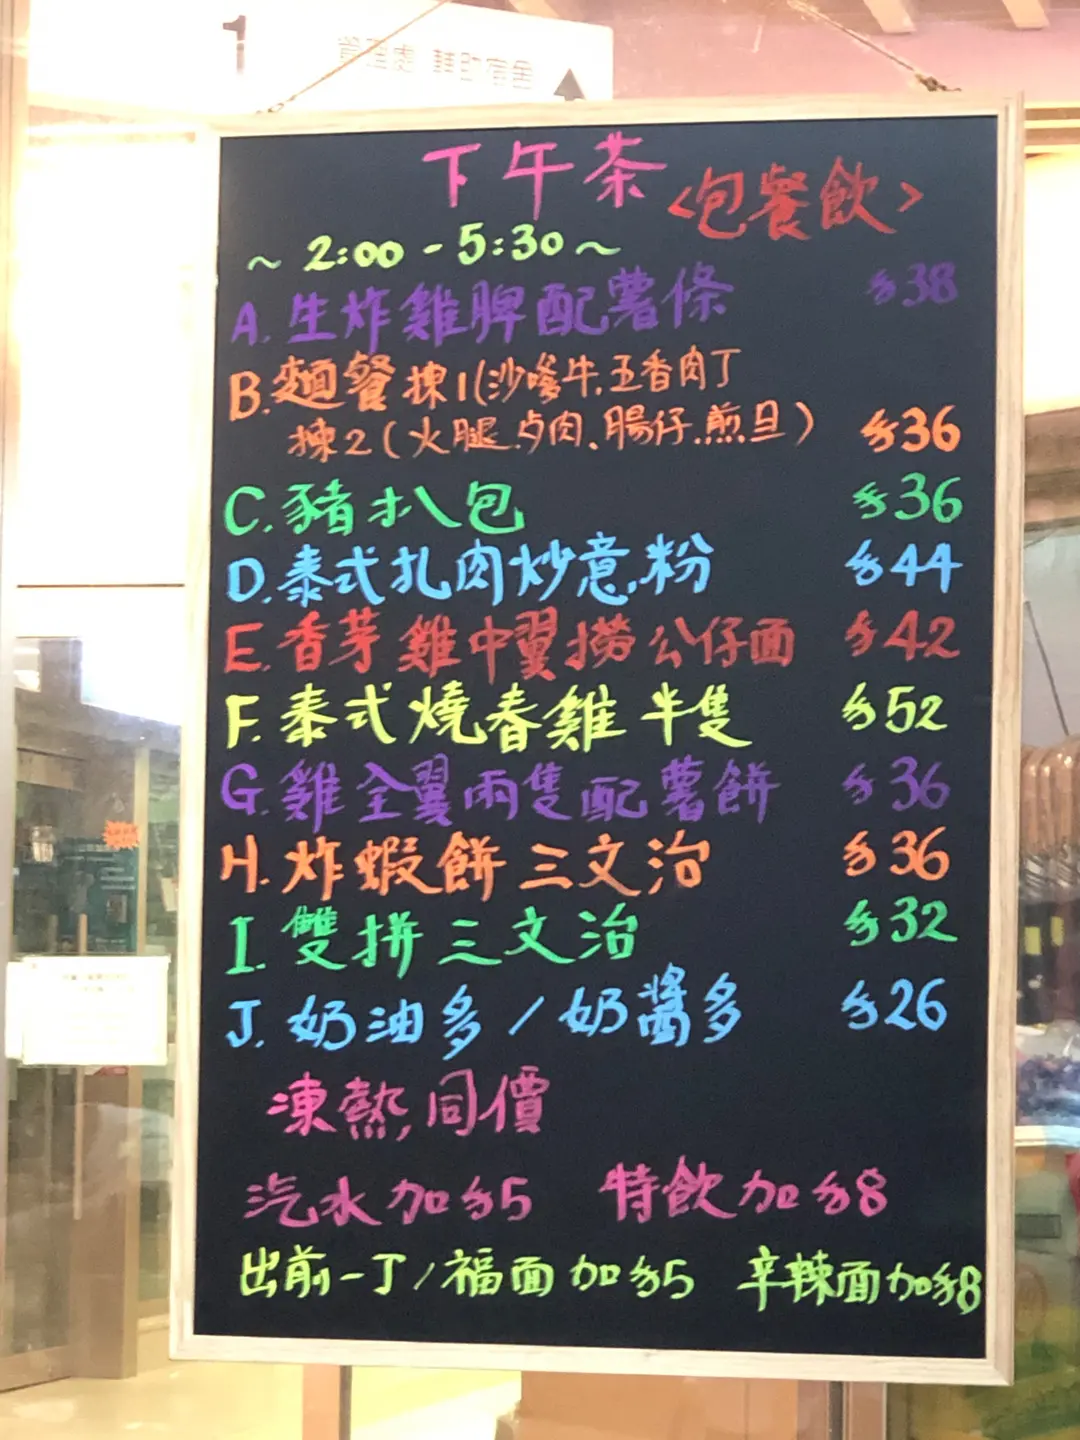 1
管理處
下午茶 <包餐飲>
~ 2:00 - 5:30 ~
A. 生炸雞脾配薯條 $38
B. 麵餐 揀1(沙嗲牛.五香肉丁
揀2(火腿.卢肉、腸仔.煎旦) $36
C. 豬扒包 $36
D. 泰式扎肉炒意粉 $44
E. 香芽雞中翼撈公仔面 $42
F. 泰式燒春雞半隻 $52
G. 雞全翼兩隻配薯餅 $36
H. 炸蝦餅三文治 $36
I. 雙拼三文治 $32
J. 奶油多/奶醬多 $26
凍熱,同價
汽水加$5 特飲加$8
出前一丁/福面加$5 辛辣面加$8